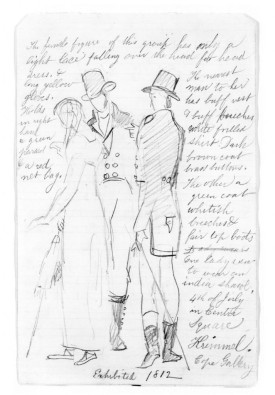 The female figure of this group has only a
light lace falling over the head for head
dress. &
long yellow
gloves.
Holds
in right
hand
a green
parasol
& a red
net bag.
The nearest
man to her
has buff vest
& buff breeches
white frilled
shirt Dark
brown coat
brass buttons.
The other a
green coat
whitish
breeches &
fair top boots
One lady seen
to wear an
india shawl.
4th of July
in Center
Square
Krimmel.
Cope Gallery
Exhibited 1812